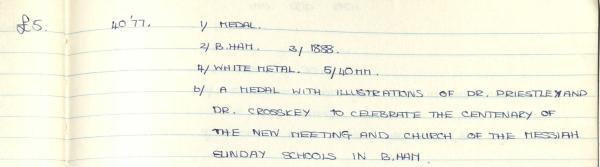 £5. 40'77. 1/ MEDAL.
2/ B.HAM. 3/ 1888.
4/ WHITE METAL. 5/ 40MM.
6/ A MEDAL WITH ILLUSTRATIONS OF DR. PRIESTLEY AND
DR. CROSSKEY TO CELEBRATE THE CENTENARY OF
THE NEW MEETING AND CHURCH OF THE MESSIAH
SUNDAY SCHOOLS IN B.HAM.